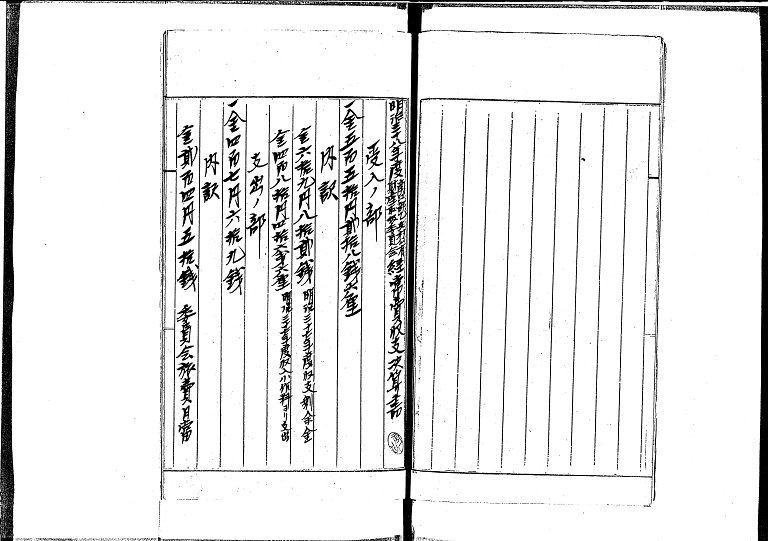 明治三十八年度経常費收支決算書
受入ノ部
一金五百五拾円貳拾八銭六厘
内訳
金六拾九円八拾貳銭 明治三十七年度收支剰余金
金四百八拾円四拾六銭六厘 明治三十八年度收入小作料ヨリ支出
支出ノ部
一金四百七円六拾九銭
内訳
金貳百四円五拾銭 委員会旅費日当